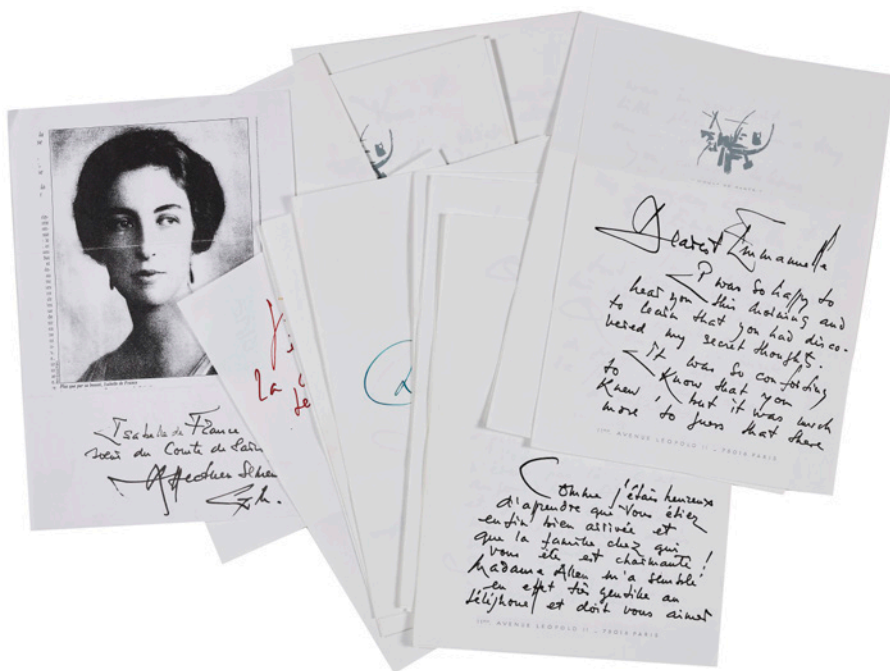 Plus que par sa beauté, Isabelle de France
Isabelle de France
soeur du Comte de Sain
La
Dearest Emmanuelle
I was so happy to
hear you this morning and
to learn that you had disco-
vered my secret thought.
It was so comforting
to know that you
knew, but it was much
more to guess that there
AVENUE LÉOPOLD II _ PARIS
Comme j'étais heureux
d'aprendre que vous étiez
enfin bien arrivée et
que la famille chez qui
vous ête est charmante !
Madame Allen m'a semblé
en effet très gentille au
téléphone et doit vous aimer
AVENUE LÉOPOLD II _ PARIS